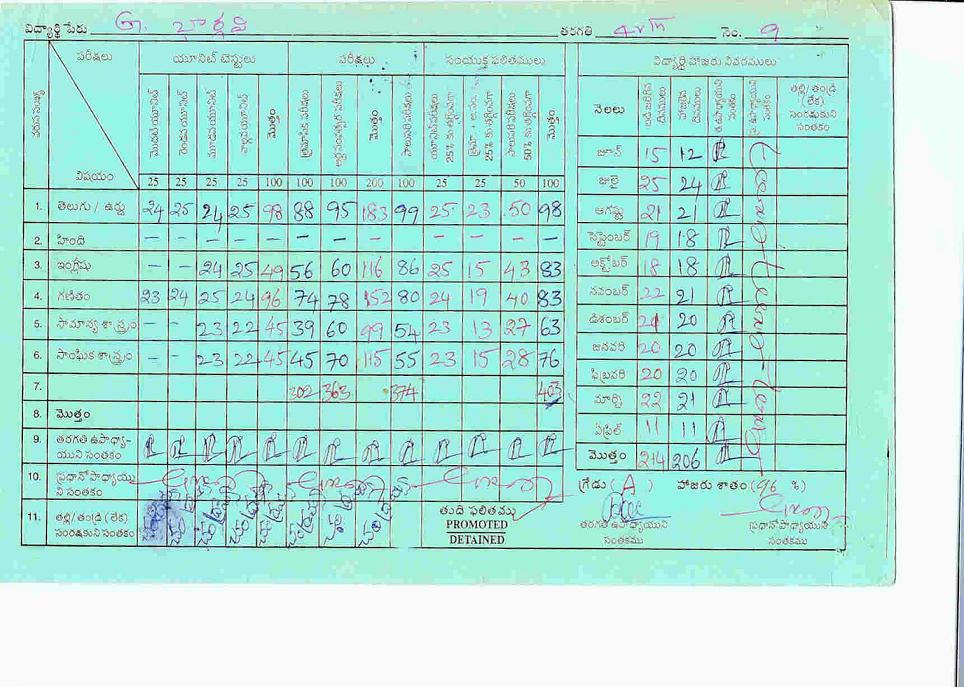 విద్యార్థి పేరు G. భార్గవి తరగతి 4వ నెం. 9
పరీక్షలు యూనిట్ టెస్టులు పరీక్షలు సంయుక్త ఫలితములు
వరుస సంఖ్య విషయం మొదటి యూనిట్ రెండవ యూనిట్ మూడవ యూనిట్ నాల్గవ యూనిట్ మొత్తం త్రైమాసిక పరీక్షలు అర్ధసంవత్సర పరీక్షలు మొత్తం సాలుసరి పరీక్షలు యూనిట్ పరీక్షలు 25% కు తగ్గించగా 25% కు తగ్గించగా సాలుసరి పరీక్షలు 50% కు తగ్గించగా మొత్తం
25 25 25 25 100 100 100 200 100 25 25 50 100
1. తెలుగు / ఉర్దు 24 25 24 25 98 88 95 183 99 25 23 50 98
2. హింది – – – – – – – – – – – – –
3. ఇంగ్లీషు – – 24 25 49 56 60 116 86 25 15 43 83
4. గణితం 23 24 25 24 96 74 78 152 80 24 19 40 83
5. సామాన్య శాస్త్రం – – 23 22 45 39 60 99 54 23 13 27 63
6. సాంఘిక శాస్త్రం – – 23 22 45 45 70 115 55 23 15 28 76
7. 302 363 374 403
8. మొత్తం
9. తరగతి ఉపాధ్యా-
యుని సంతకం
10. ప్రధానోపాధ్యాయు
ని సంతకం
11. తల్లి/ తండ్రి (లేక)
సంరక్షకుని సంతకం
తుది ఫలితము
PROMOTED
DETAINED
విద్యార్థి హాజరు వివరములు
నెలలు బడి జరిగిన దినములు హాజరైన దినములు త.ఉపాధ్యాయుని సంతకం ప్ర.ఉపాధ్యాయుని సంతకం తల్లి/ తండ్రి (లేక) సంరక్షకుని సంతకం
జూన్ 15 12
జులై 25 24
ఆగష్టు 21 21
సెప్టెంబర్ 19 18
అక్టోబర్ 18 18
నవంబర్ 22 21
డిశంబర్ 21 20
జనవరి 20 20
ఫిబ్రవరి 20 20
మార్చి 22 21
ఏప్రిల్ 11 11
మొత్తం 214 206
గ్రేడు ( A ) హాజరు శాతం ( 96 %)
తరగతి ఉపాధ్యాయుని
సంతకము
ప్రధానోపాధ్యాయుని
సంతకము